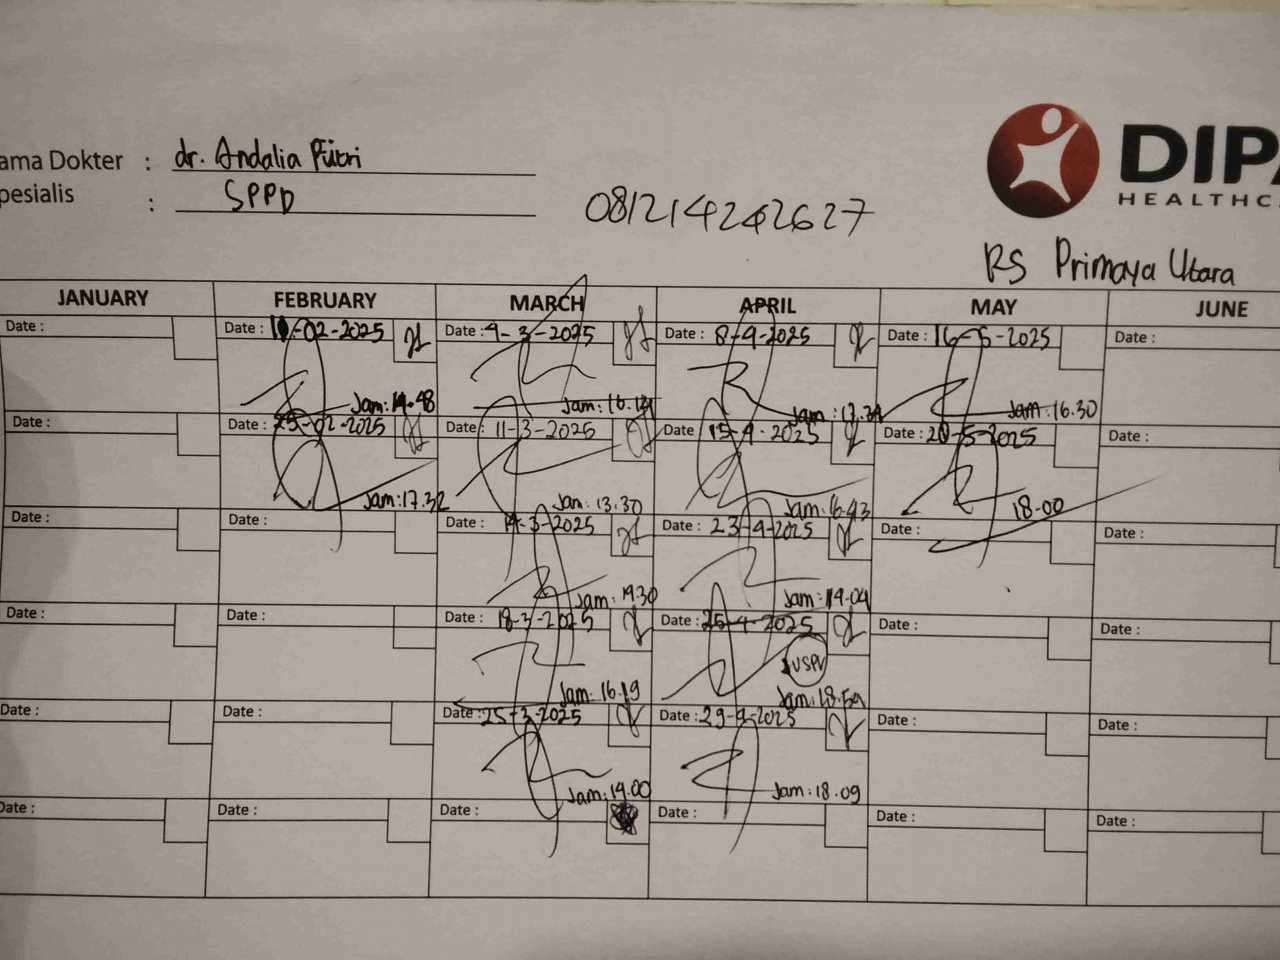 ama Dokter : dr. Andalia Putri
pesialis : SPPD
081214242627
DIPA
HEALTHC
RS Primaya Utara
JANUARY FEBRUARY MARCH APRIL MAY JUNE
Date : Date : 10-02-2025 Date : 4-3-2025 Date : 8-4-2025 Date : 16-5-2025 Date :
Jam: 14.48 Jam: Jam: Jam: 16.30
Date : Date : 25-02-2025 Date : 11-3-2025 Date 15-4-2025 Date : 20-5-2025 Date :
Jam: 17.32 Jam: 13.30 Jam: 16.43 18-00
Date : Date : Date : 14-3-2025 Date : 23-4-2025 Date : Date :
Jam: 14.04
Date : Date : Date : 18-3-2025 Date : 25-4-2025 Date : Date :
VSPV
Jam: 16.19 Jam: 18.59
Date : Date : Date : 25-3-2025 Date : 29-4-2025 Date : Date :
Jam: 14.00 Jam: 18.09
Date : Date : Date : Date : Date : Date :